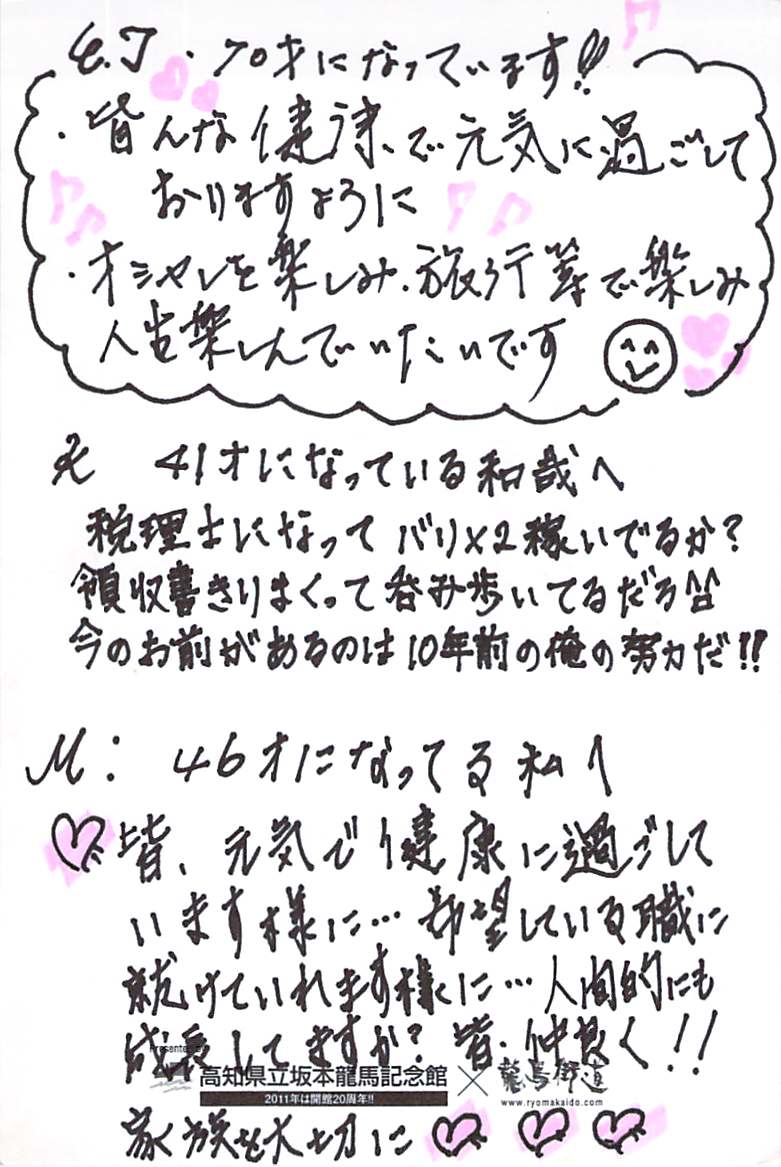 E.J・70才になっています!!
・皆んな健康、で元気に過ごして
おりますように
・オシャレを楽しみ、旅行等で楽しみ
人生楽しんでいたいです
K 41才になっている和哉へ
税理士になってバリ×2稼いでるか?
領収書きりまくって呑み歩いてるだろ^^
今のお前があるのは10年前の俺の努力だ!!
M: 46才になってる私へ
皆、元気で健康に過ごして
います様に…希望している職に
就けていれます様に…人間的にも
成長してますか?皆、仲良く!!
Presented by
高知県立坂本龍馬記念館 × 龍馬街道
2011年は開館20周年!! www.ryomakaido.com
家族を大切に